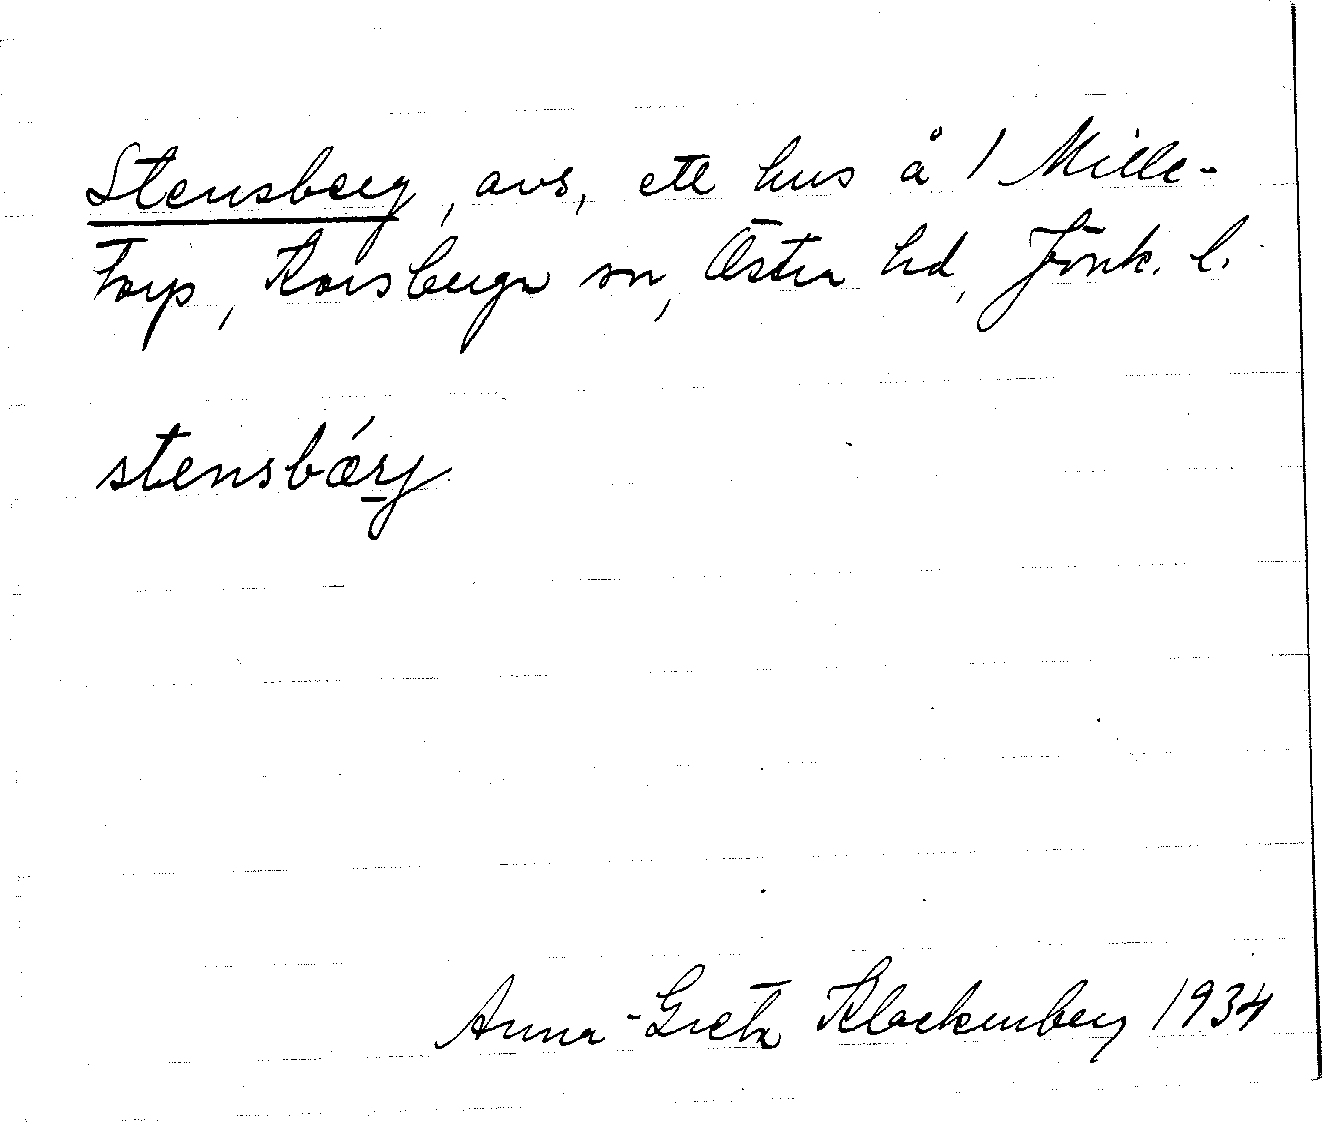 Stensberg, avs, ett hus å 1 Mille-
torp, Korsberga sn, Östra hd, Jönk. l.
stensbǽrj
Anna-Greta Klockenberg 1934